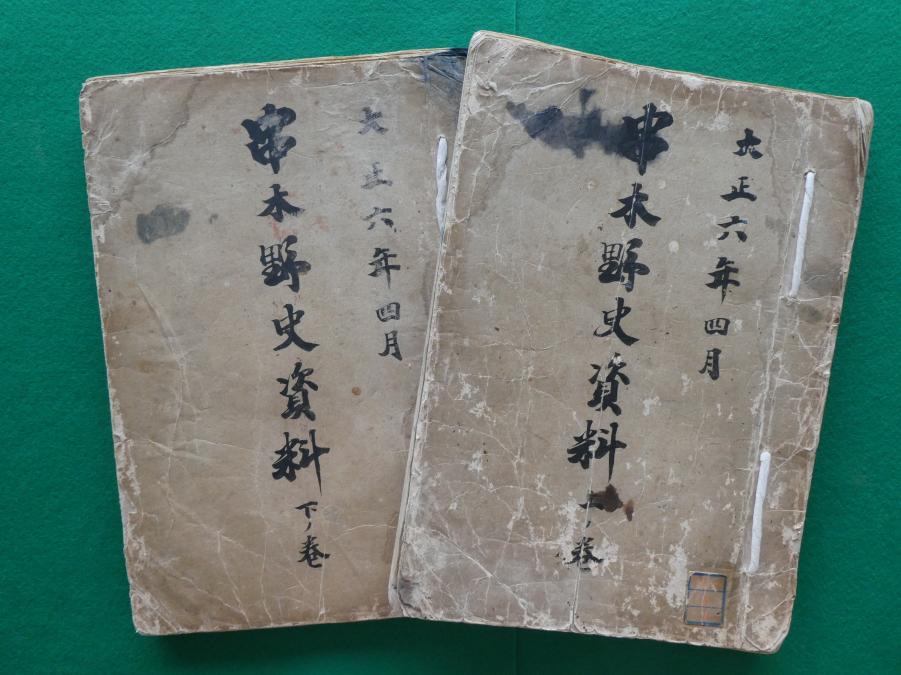 大正六年四月
串木野史資料 上ノ巻
大正六年四月
串木野史資料 下ノ巻